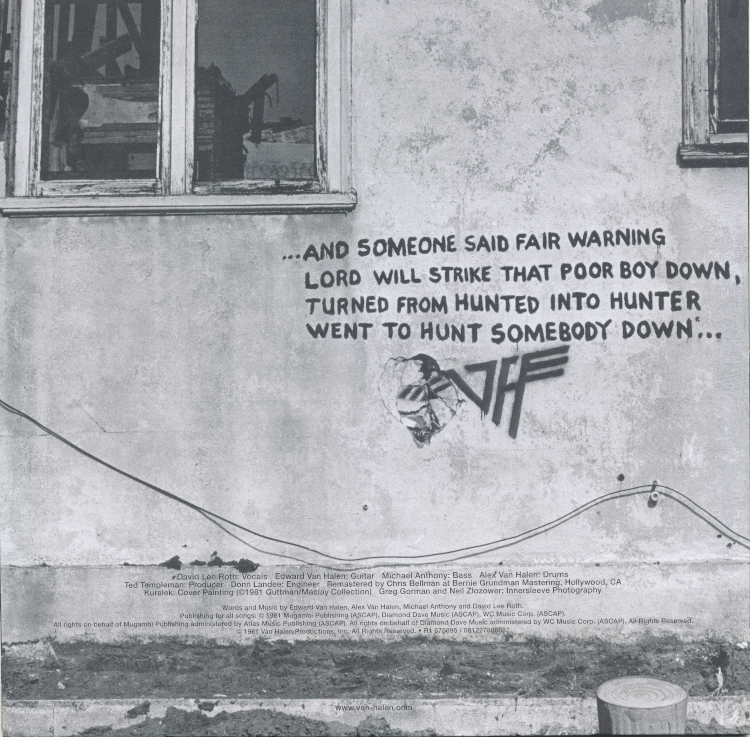 ...AND SOMEONE SAID FAIR WARNING
LORD WILL STRIKE THAT POOR BOY DOWN,
TURNED FROM HUNTED INTO HUNTER
WENT TO HUNT SOMEBODY DOWN"...
VH
David Lee Roth: Vocals Edward Van Halen: Guitar Michael Anthony: Bass Alex Van Halen: Drums
Ted Templeman: Producer Donn Landee: Engineer Remastered by Chris Bellman at Bernie Grundman Mastering, Hollywood, CA
Kurelek: Cover Painting (©1981 Guttman/Maclay Collection) Greg Gorman and Neil Zlozower: Innersleeve Photography
Words and Music by Edward Van Halen, Alex Van Halen, Michael Anthony and David Lee Roth.
Publishing for all songs: © 1981 Mugambi Publishing (ASCAP), Diamond Dave Music (ASCAP), WC Music Corp. (ASCAP).
All rights on behalf of Mugambi Publishing administered by Atlas Music Publishing (ASCAP). All rights on behalf of Diamond Dave Music administered by WC Music Corp. (ASCAP). All Rights Reserved.
© 1981 Van Halen Productions, Inc. All Rights Reserved. • R1 670895 /
www.van-halen.com